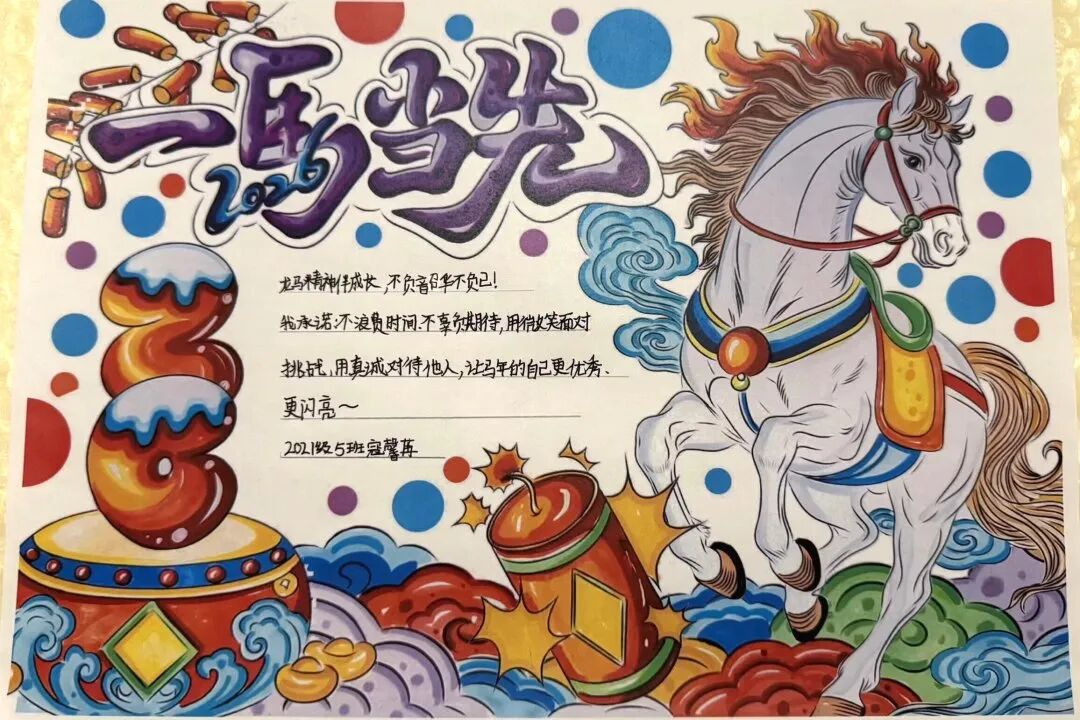 一馬当先
2026
龙马精神伴成长,不负韶华不负己!
我承诺:不浪费时间.不辜负期待,用微笑面对
挑战,用真诚对待他人,让马年的自己更优秀、
更闪亮~
2021级5班寇馨苒